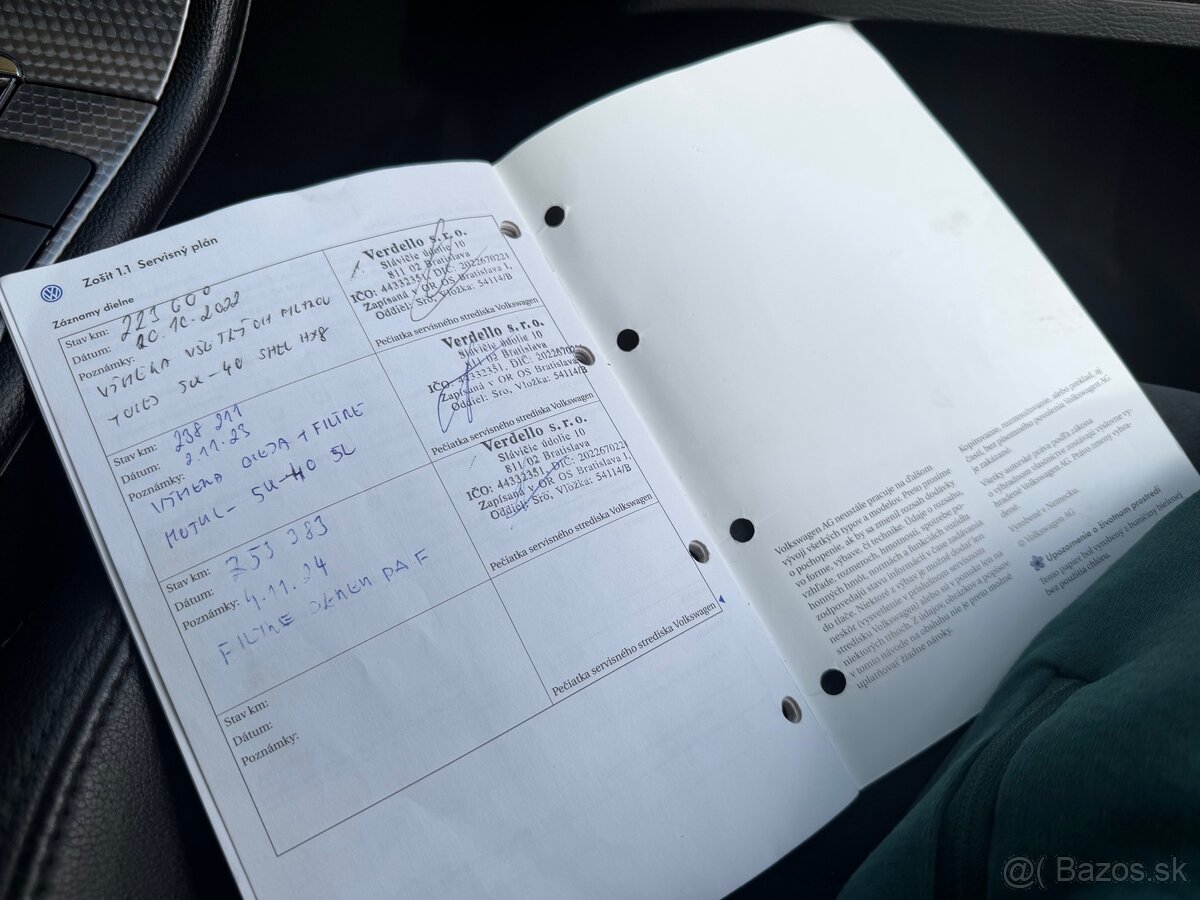 Zošit 1.1 Servisný plán
Záznamy dielne
Stav km: 223 600
Dátum: 20.10.2022
Poznámky:
VÝMENA VŠETKÝCH FILTROV
+ OLEJ 5W-40 SHELL HX8
Verdello s. r. o.
Slávičie údolie 10
811 02 Bratislava
IČO: 44332351, DIČ: 2022670221
Zapísaná v OR OS Bratislava I,
Oddiel: Sro, Vložka: 54114/B
Pečiatka servisného strediska Volkswagen
Stav km: 238 211
Dátum: 2.11.23
Poznámky:
VÝMENA OLEJA + FILTRE
MOTUL - 5W-40 5L
Verdello s. r. o.
Slávičie údolie 10
811 02 Bratislava
IČO: 44332351, DIČ: 2022670221
Zapísaná v OR OS Bratislava I,
Oddiel: Sro, Vložka: 54114/B
Pečiatka servisného strediska Volkswagen
Stav km: 253 383
Dátum: 4.11.24
Poznámky:
FILTRE OKREM PAF
Verdello s. r. o.
Slávičie údolie 10
811 02 Bratislava
IČO: 44332351, DIČ: 2022670221
Zapísaná v OR OS Bratislava I,
Oddiel: Sro, Vložka: 54114/B
Pečiatka servisného strediska Volkswagen
Stav km:
Dátum:
Poznámky:
Pečiatka servisného strediska Volkswagen
Volkswagen AG neustále pracuje na ďalšom
vývoji všetkých typov a modelov. Preto prosíme
o pochopenie, ak by sa zmenil rozsah dodávky
vo forme, výbave, či technike. Údaje o rozsahu,
vzhľade, rozmeroch, hmotnosti, spotrebe po-
honných hmôt, normách a funkciách vozidla
zodpovedajú stavu informácií v čase zadávania
do tlače. Niektoré z výbav je možné dodať len
neskôr (vysvetlenie v príslušnom servisnom
stredisku Volkswagen) alebo sú v ponuke len na
niektorých trhoch. Z údajov, obrázkov a popisov
v tomto návode na obsluhu nie je preto možné
uplatňovať žiadne nároky.
Kopírovanie, rozmnožovanie, alebo preklad, aj
častí, bez písomného povolenia Volkswagen AG
je zakázané.
Všetky autorské práva podľa zákona
o výhradnom vlastníctve zostávajú výslovne vy-
hradené Volkswagen AG. Právo zmeny vyhra-
dené.
Vyrobené v Nemecku.
© Volkswagen AG
Upozornenie o životnom prostredí
Tento papier bol vyrobený z buničiny bielenej
bez použitia chlóru.
@( Bazos.sk